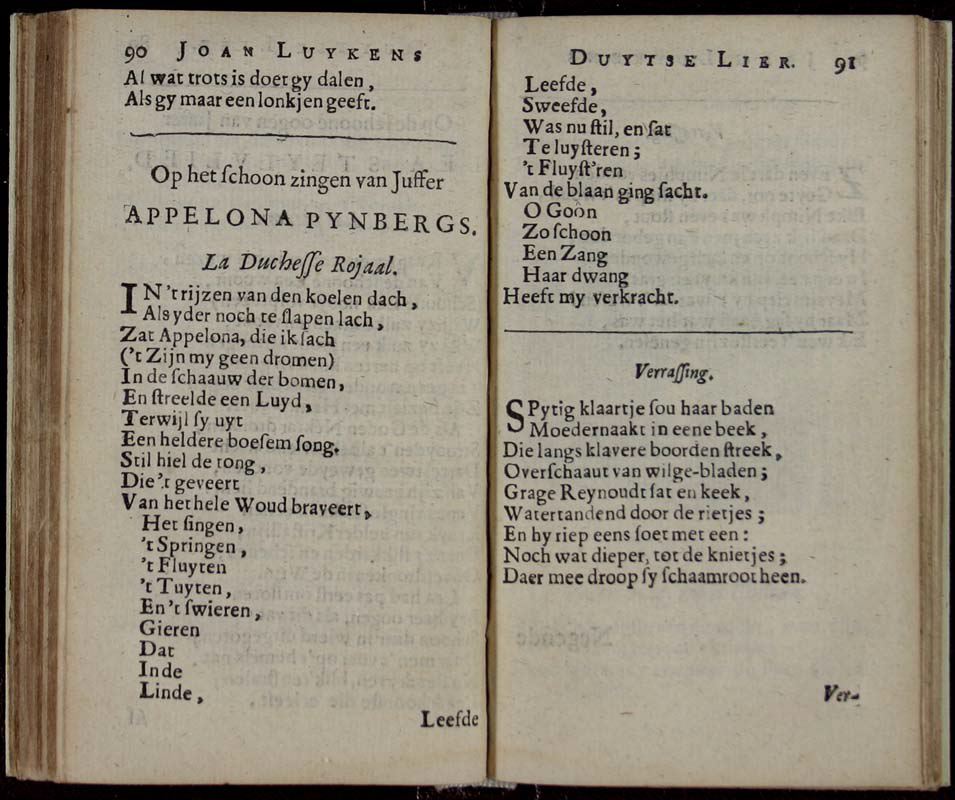 90 JOAN LUYKENS
Al wat trots is doet gy dalen,
Als gy maar een lonkjen geeft.
Op het ſchoon zingen van Juffer
APPELONA PYNBERGS.
La Ducheſſe Rojaal.
IN 't rijzen van den koelen dach,
Als yder noch te ſlapen lach,
Zat Appelona, die ik ſach
('t Zijn my geen dromen)
In de ſchaauw der bomen,
En ſtreelde een Luyd,
Terwijl ſy uyt
Een heldere boeſem ſong.
Stil hiel de tong,
Die 't geveert
Van het hele Woud braveert,
Het ſingen,
't Springen,
't Fluyten
't Tuyten,
En 't ſwieren,
Gieren
Dat
In de
Linde,
Leefde
DUYTSE LIER. 91
Leefde,
Sweefde,
Was nu ſtil, en ſat
Te luyſteren;
't Fluyſt'ren
Van de blaan ging ſacht.
O Goôn
Zo ſchoon
Een Zang
Haar dwang
Heeft my verkracht.
Verraſſing.
SPytig klaartje ſou haar baden
Moedernaakt in eene beek,
Die langs klavere boorden ſtreek,
Overſchaaut van wilge-bladen;
Grage Reynoudt ſat en keek,
Watertandend door de rietjes;
En hy riep eens ſoet met een:
Noch wat dieper, tot de knietjes;
Daer mee droop ſy ſchaamroot heen.
Ver-